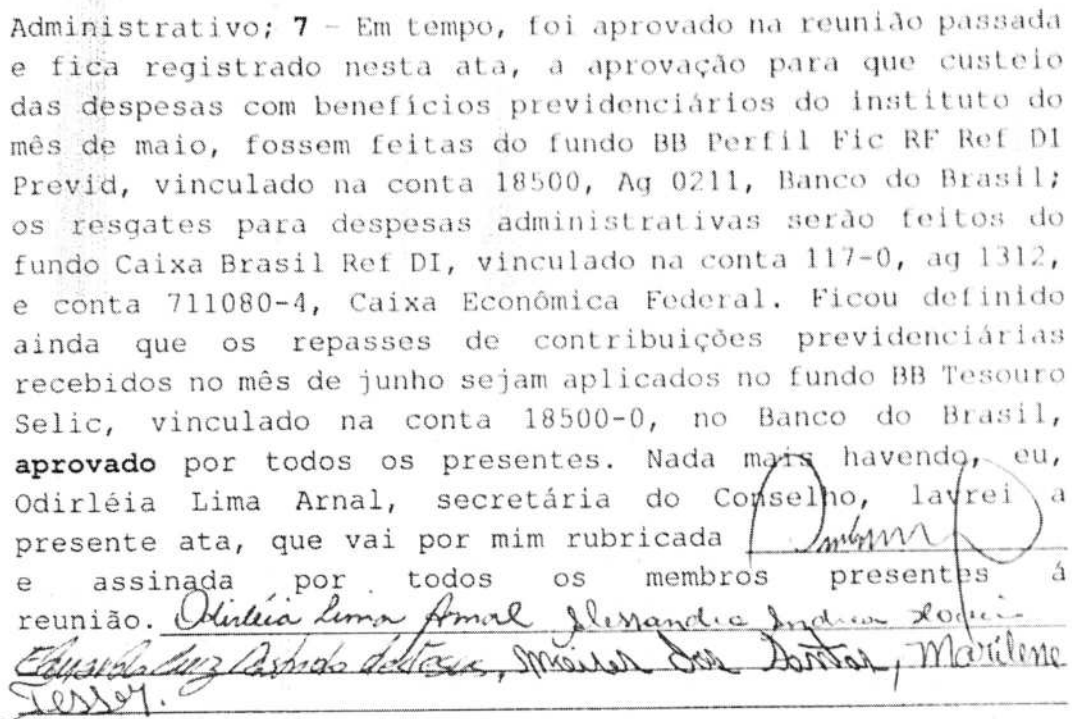 Administrativo; 7 – Em tempo, foi aprovado na reunião passada
e fica registrado nesta ata, a aprovação para que custeio
das despesas com benefícios previdenciários do instituto do
mês de maio, fossem feitas do fundo BB Perfil Fic RF Ref DI
Previd, vinculado na conta 18500, Ag 0211, Banco do Brasil;
os resgates para despesas administrativas serão feitos do
fundo Caixa Brasil Ref DI, vinculado na conta 117-0, ag 1312,
e conta 711080-4, Caixa Econômica Federal. Ficou definido
ainda que os repasses de contribuições previdenciárias
recebidos no mês de junho sejam aplicados no fundo BB Tesouro
Selic, vinculado na conta 18500-0, no Banco do Brasil,
aprovado por todos os presentes. Nada mais havendo, eu,
Odirléia Lima Arnal, secretária do Conselho, lavrei a
presente ata, que vai por mim rubricada
e assinada por todos os membros presentes á
reunião. Odirléia Lima Arnal Alessandra
Luiz, Moises dos Santos, Marilene
Tesser.